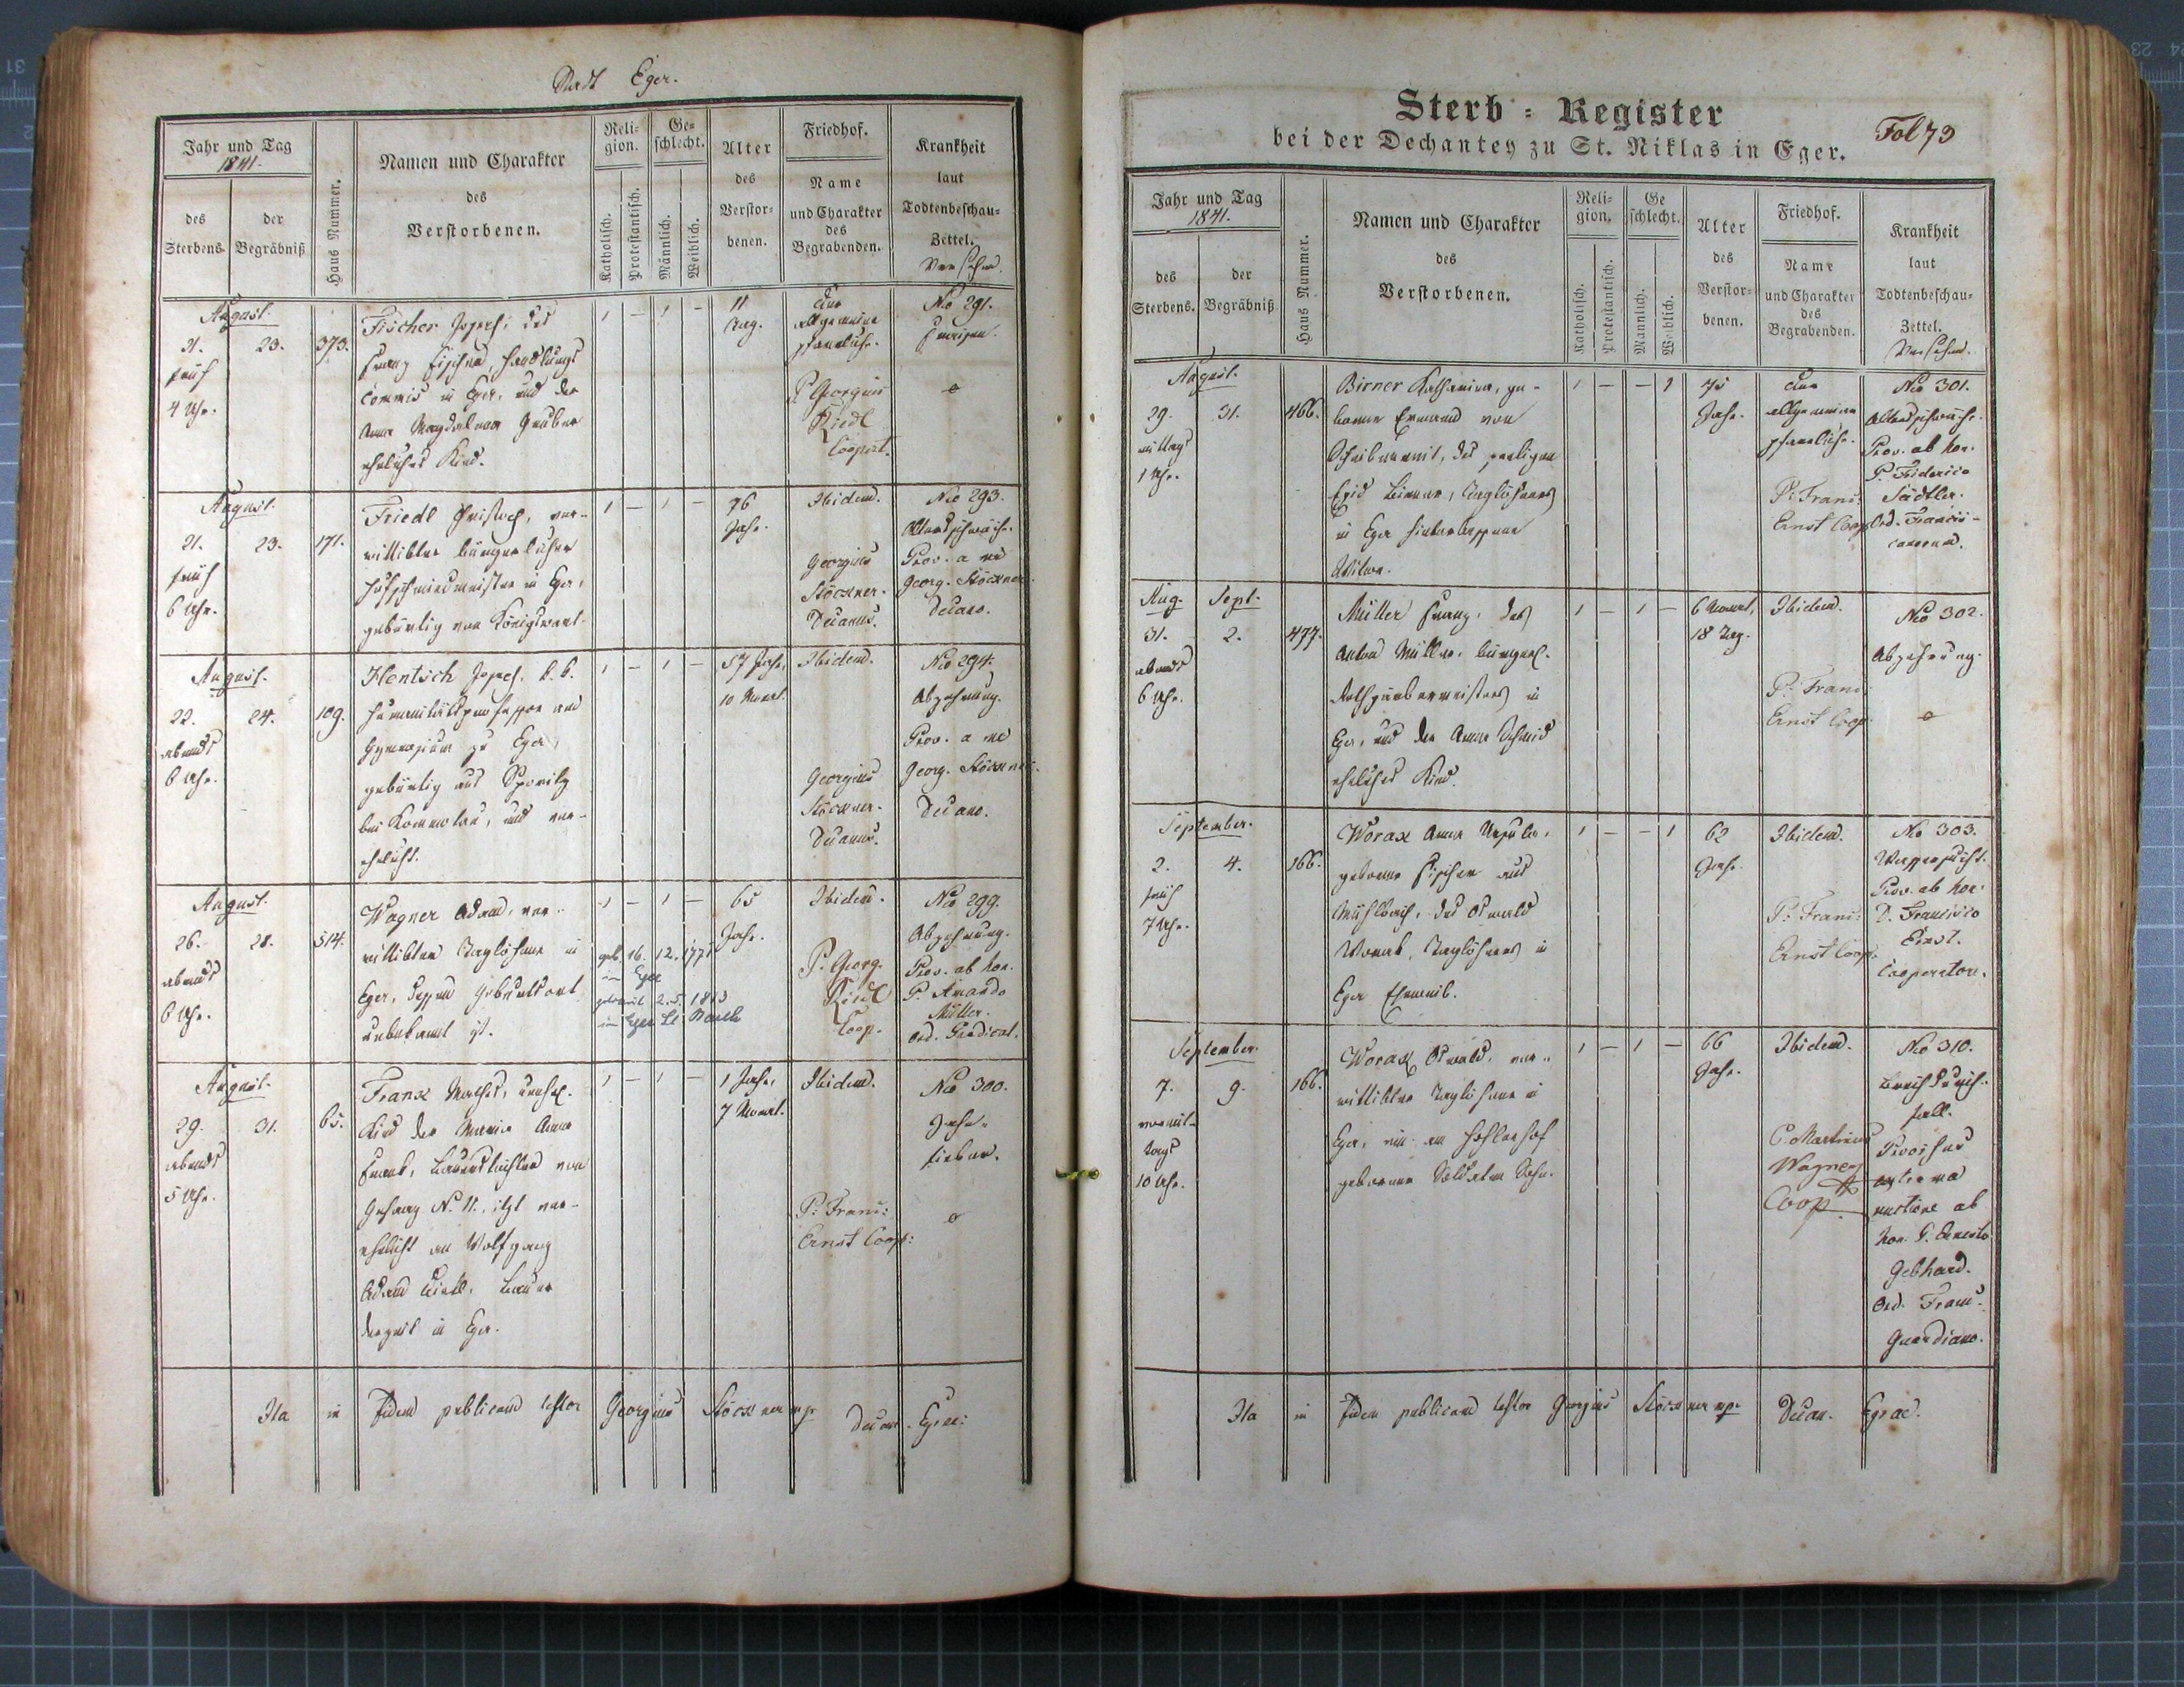 Stadt Eger.
Jahr und Tag
1841.
des Sterbens
der Begräbniß
Haus Nummer.
Namen und Charakter
des
Verstorbenen.
Religion.
Katholisch.
Protestantisch.
Geschlecht.
Männlich.
Weiblich.
Alter
des
Verstorbenen.
Friedhof.
Name
und Charakter
des
Begrabenden.
Krankheit
laut
Todtenbeschau-
Zettel.
Versehen.
August.
21. 23. 373.
früh
4 Uhr.
Fischer Joseph, des
Franz Fischer, Handlungs
Commis in Eger, und der
Anna Magdalena Gruber
eheliches Kind.
1 – 1 –
11
Tag.
Der
allgemeine
pfarrliche.
P. Georgius
Riedl
Cooperat.
No 291.
Fraisen.
o
August.
21. 23. 171.
früh
6 Uhr.
Friedl Christoph, ver-
wittibter bürgerlicher
Hufschmiedmeister in Eger,
gebürtig von Königswart.
1 – 1 –
76
Jahr.
Ibidem.
Georgius
Stöckner.
Decanus.
No 293.
Altersschwäche.
Prov. a me
Georg. Stöckner
Decano.
August.
22. 24. 109.
abends
6 Uhr.
Hentsch Joseph. k. k.
Humanitätsprofessor am
Gymnasium zu Eger,
gebürtig aus Sporitz
bei Kommotau, und ver-
ehelicht.
1 – 1 –
57 Jahr,
10 Monat.
Ibidem.
Georgius
Stöckner.
Decanus.
No 294.
Abzehrung.
Prov. a me
Georg. Stöckner.
Decano.
August.
26. 28. 514.
abends
6 Uhr.
Wagner Adam, ver-
wittibter Taglöhner in
Eger, dessen Geburtsort
unbekannt ist.
1 – 1 –
geb. 16. 12. 1771
in Eger
getraut 2. 5. 1813
in Eger
65
Jahr.
Ibidem.
P. Georg.
Riedl
Coop.
No 299.
Abzehrung.
Prov. ab hon.
P. Amando
Müller.
Ord. Prædicat.
August.
29. 31. 65.
abends
5 Uhr.
Frank Mathes, unehel.
Kind der Maria Anna
Frank, Bauerstochter von
Gehaag N. 11., itzt ver-
ehelicht an Wolfgang
Adam, Bauer
derzeit in Eger.
1 – 1 –
1 Jahr,
7 Monat.
Ibidem.
P: Franc:
Ernst Coop:
No 300.
Zehr-
fieber.
o
Ita in fidem publicam testor Georgius Stöckner mp. Decan. Egrae.
Sterb-Register
bei der Dechantey zu St. Niklas in Eger.
Fol 73
Jahr und Tag
1841.
des Sterbens.
der Begräbniß
Haus Nummer.
Namen und Charakter
des
Verstorbenen.
Religion.
Katholisch.
Protestantisch.
Geschlecht.
Männlich.
Weiblich.
Alter
des
Verstorbenen.
Friedhof.
Name
und Charakter
des
Begrabenden.
Krankheit
laut
Todtenbeschau-
Zettel.
Versehen.
August.
29. 31. 466.
mittags
1 Uhr.
Birner Katharina, ge-
borene von
des seeligen
Birner, Taglöhners
in Eger hinterlassene
Witwe.
1 – – 1
75
Jahr.
Der
allgemeine
pfarrliche.
P: Franc:
Ernst Coop.
No 301.
Altersschwäche.
Prov. ab hon.
P. Friderico
Sädtler.
Ord. Francis-
canorum.
Aug. Sept.
31. 2. 477.
abends
6 Uhr.
Müller Franz, des
Anton Müller, bürgerl.
Rothgärbermeisters in
Eger, und der Anna Schmid
eheliches Kind.
1 – 1 –
6 Monat,
18 Tag.
Ibidem.
P: Franc:
Ernst Coop:
No 302.
Abzehrung.
o
September.
2. 4. 166.
früh
7 Uhr.
Worak Anna Ursula,
geborne Fischer aus
Mühlbach, des Oswald
Worak, Taglöhners in
Eger Eheweib.
1 – – 1
62
Jahr.
Ibidem.
P: Franc:
Ernst Coop.
No 303.
Wassersucht.
Prov. ab hon.
D. Francisco
Ernst.
Cooperatore.
September.
7. 9. 166.
vormit-
tags
10 Uhr.
Worak Oswald, ver-
wittibter Taglöhner in
Eger, ein am Hohlerhof
geborner Soldaten Sohn.
1 – 1 –
66
Jahr.
Ibidem.
P. Martinus
Wagner
Coop.
No 310.
Bauchdurch-
fall.
Provisus
extrema
unctione ab
hon. P. Ernesto
Gebhard.
Ord. Franc.
Guardiano.
Ita in fidem publicam testor Georgius Stöckner mp. Decan. Egrae.